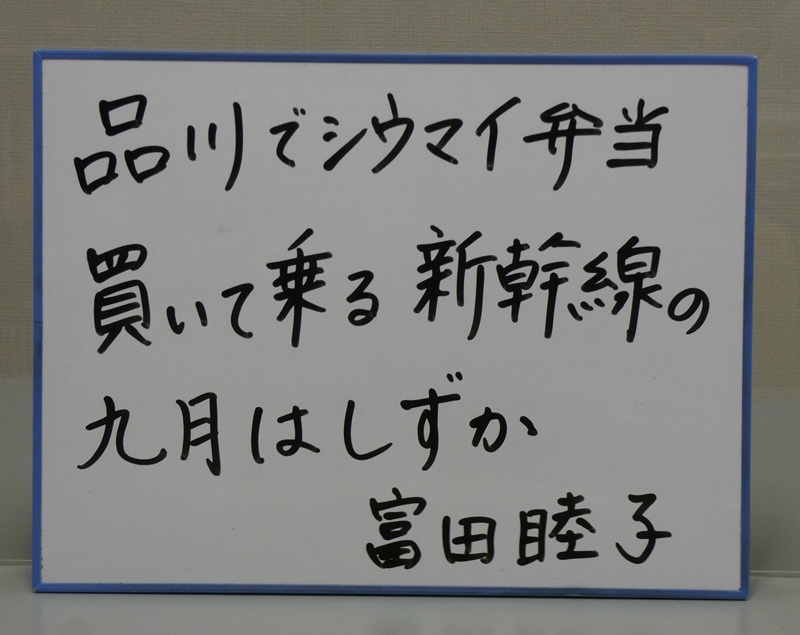 品川でシウマイ弁当
買いて乗る新幹線の
九月はしずか
富田睦子